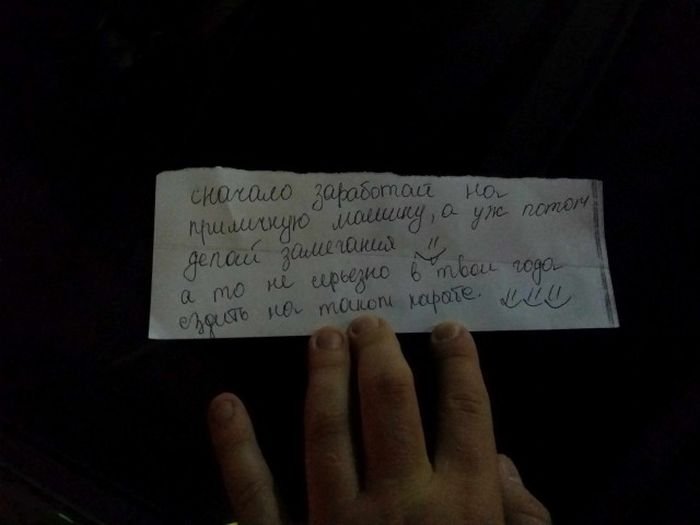 сначало заработай на
приличную машину, а уж потом
делай замечания
а то не серьезно в твои года
ездить на таком корыте.